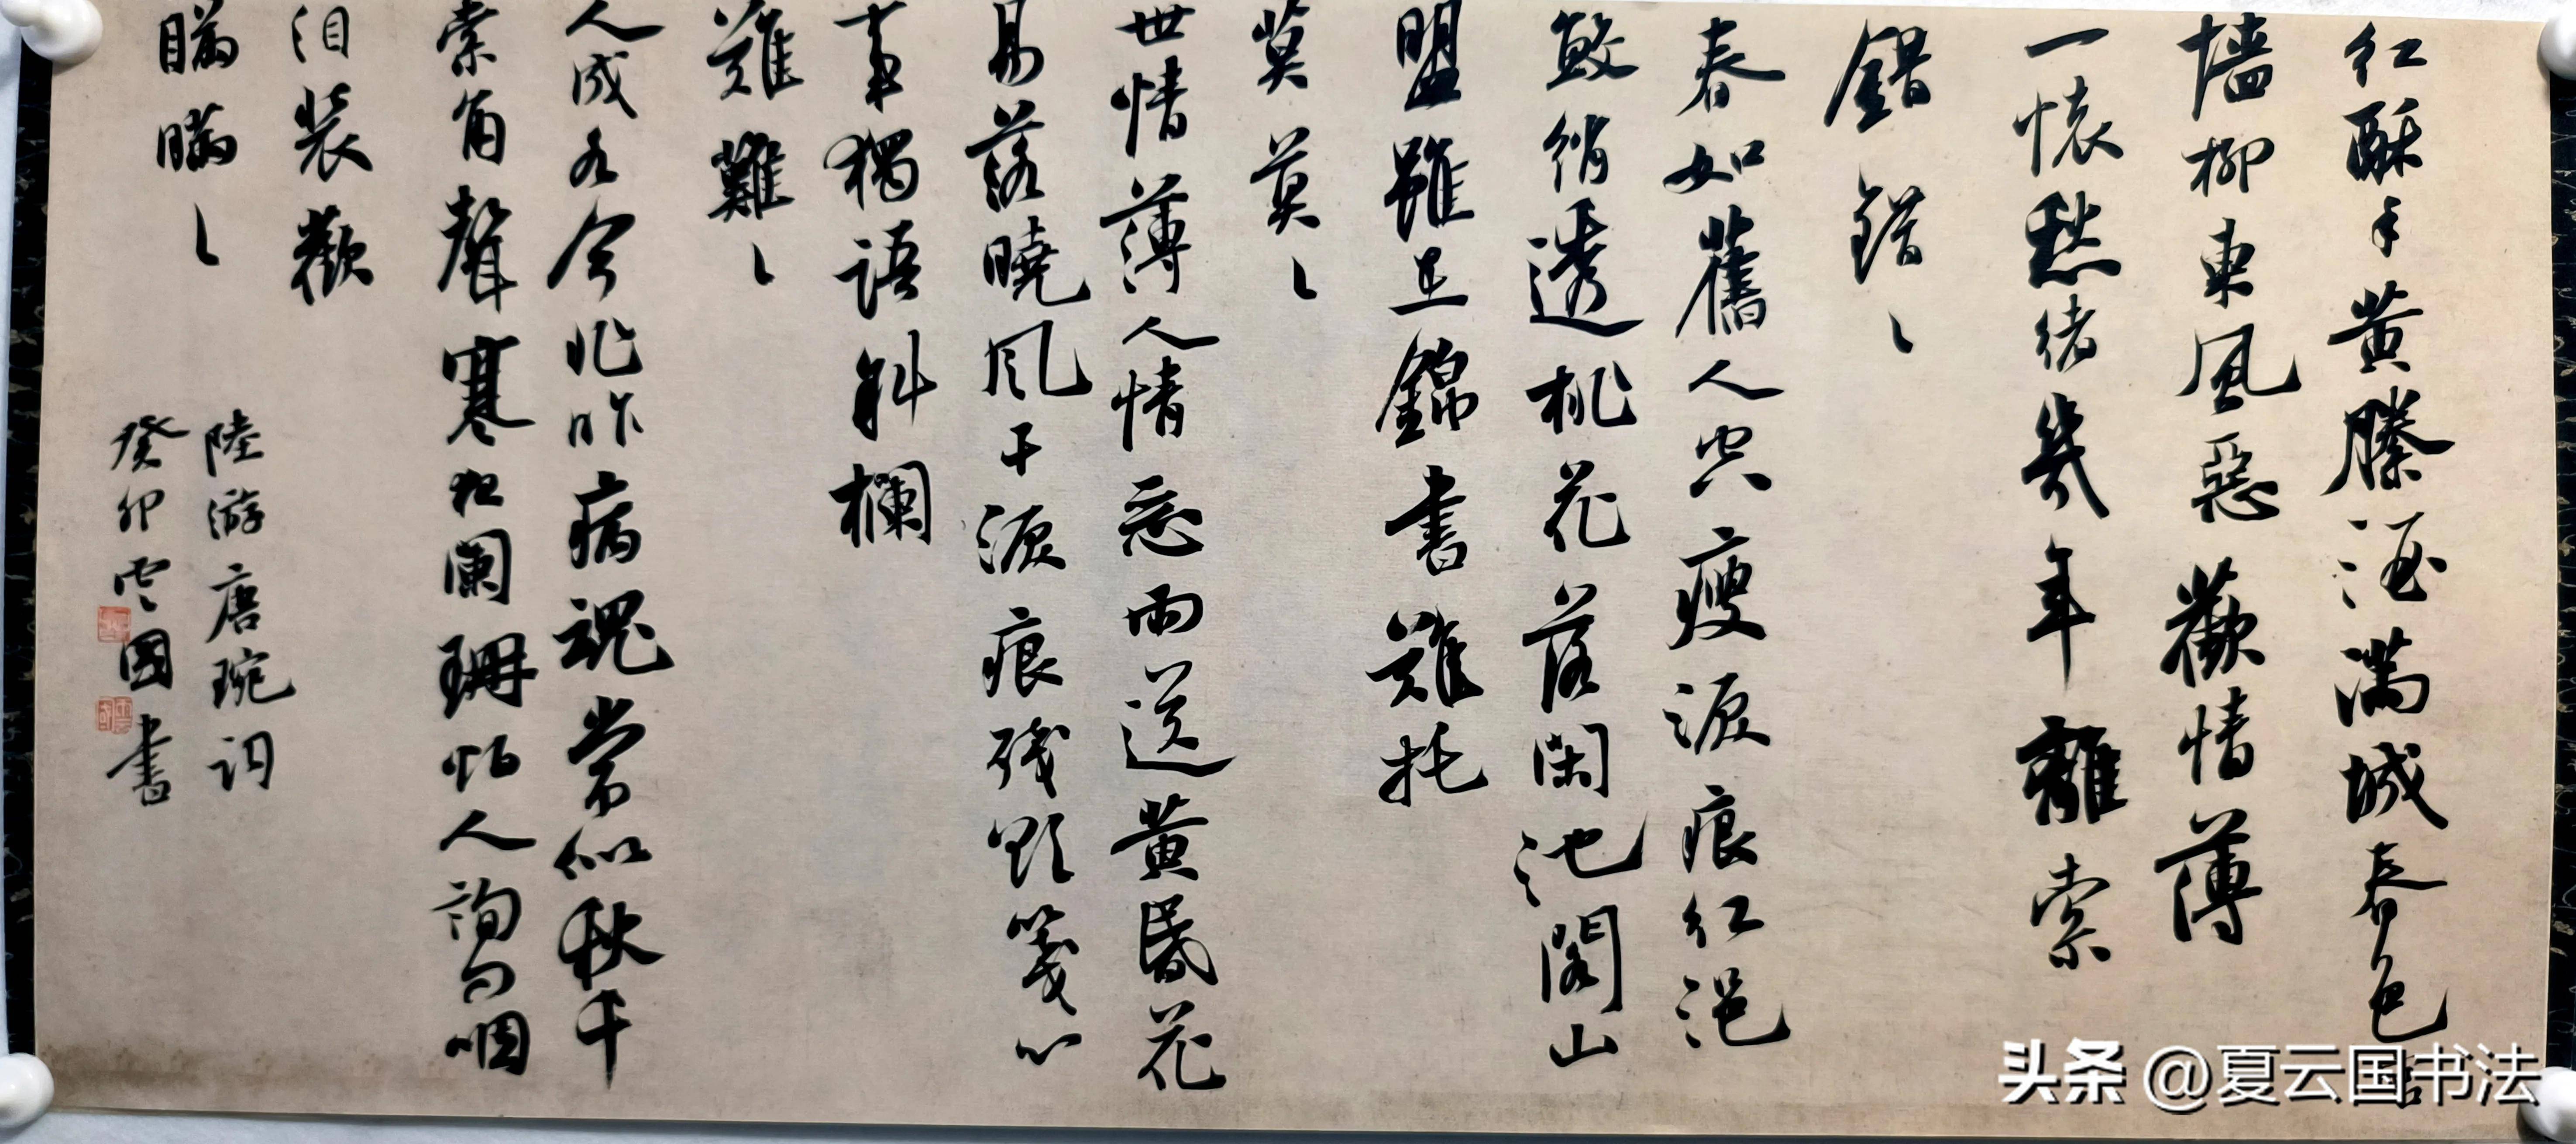 紅酥手黃縢酒滿城春色
墻柳東風惡歡情薄
一懷愁緒幾年離索
錯錯、
春如舊人空瘦淚痕紅浥
鮫綃透桃花落閑池閣山
盟雖在錦書難托
莫莫、
世情薄人情惡雨送黃昏花
易落曉風干淚痕殘欲箋心
事獨語斜欄
難難、
人成各今非昨病魂常似秋千
索角聲寒夜闌珊怕人詢問咽
泪裝歡
瞞瞞、
陸游唐琬詞
癸卯雲國書
头条 @夏云国书法